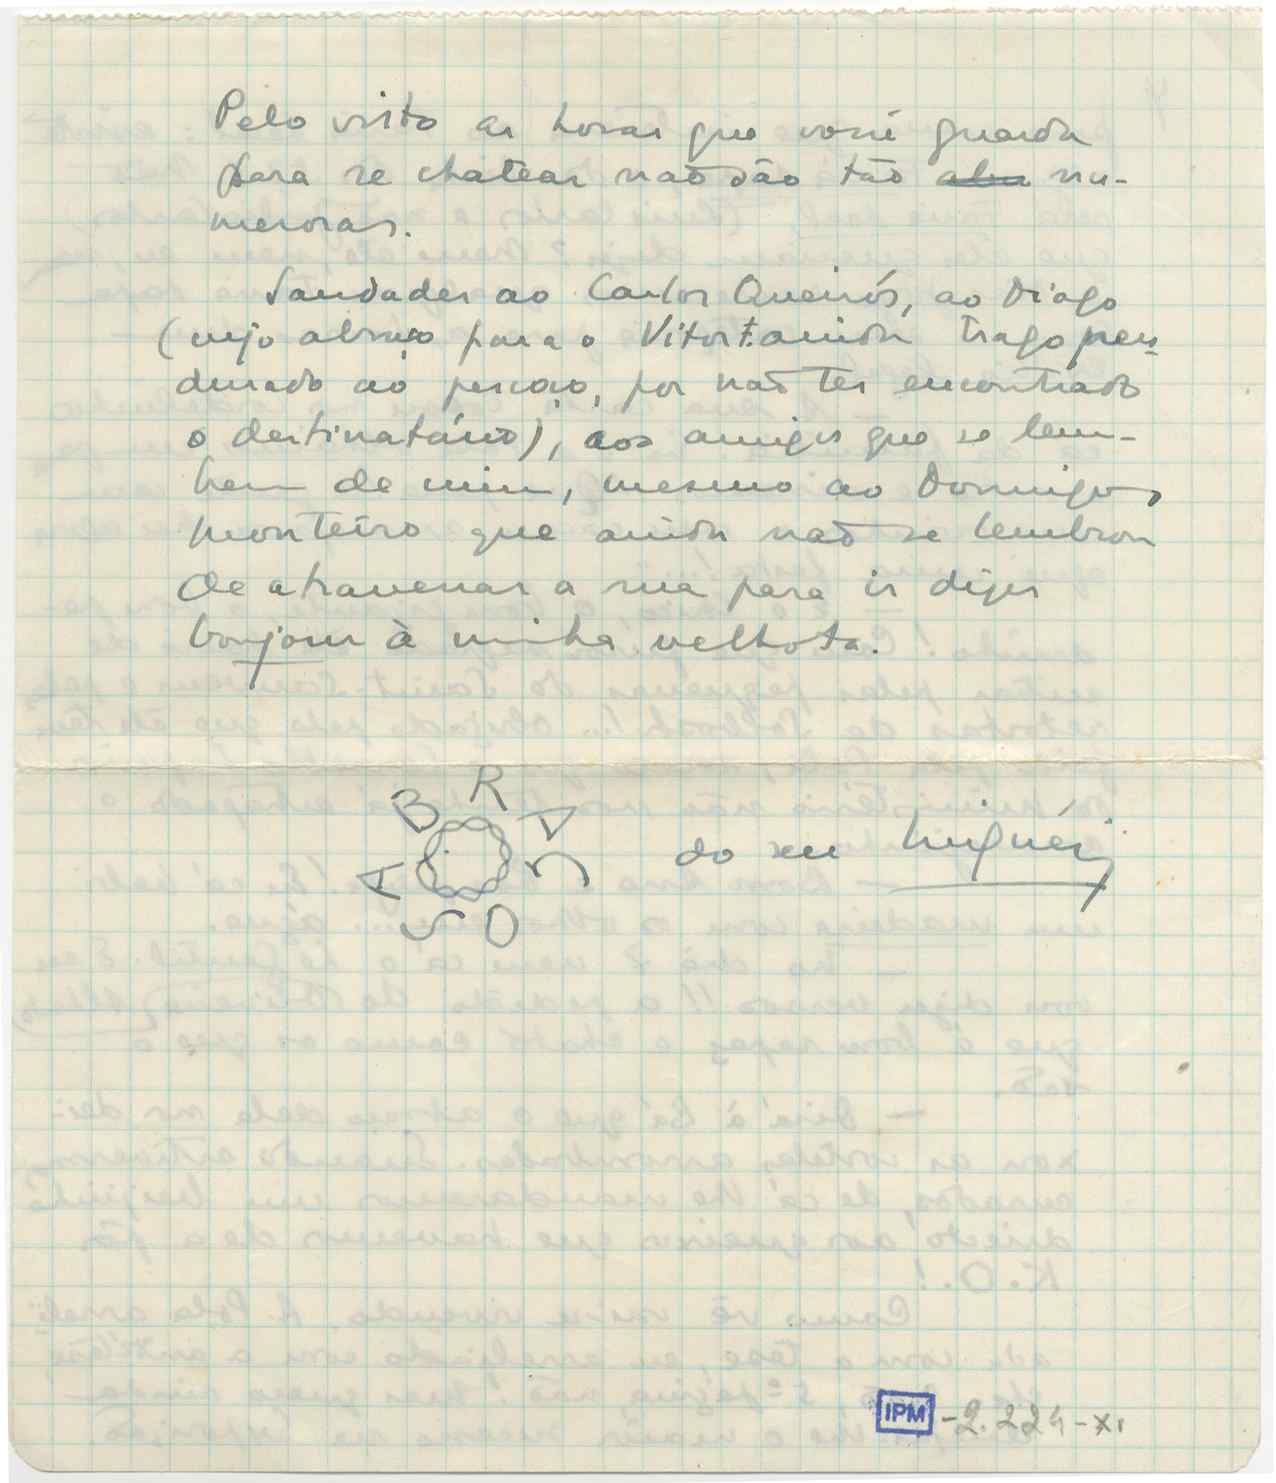 Pelo visto as horas que você guarda
para se chatear não são tão nu-
merosas.
Saudades ao Carlos Queirós, ao Diogo
(cujo abraço para o Vitor t. ainda trago pen-
durado ao pescoço, por não ter encontrado
o destinatário), aos amigos que se lem-
brem de mim, mesmo ao Domingos
Monteiro que ainda não se lembrou
de atravessar a rua para ir dizer
bonjour à minha velhota.
ABRAÇOS
do seu Miguéis
IPM -2.224-XI